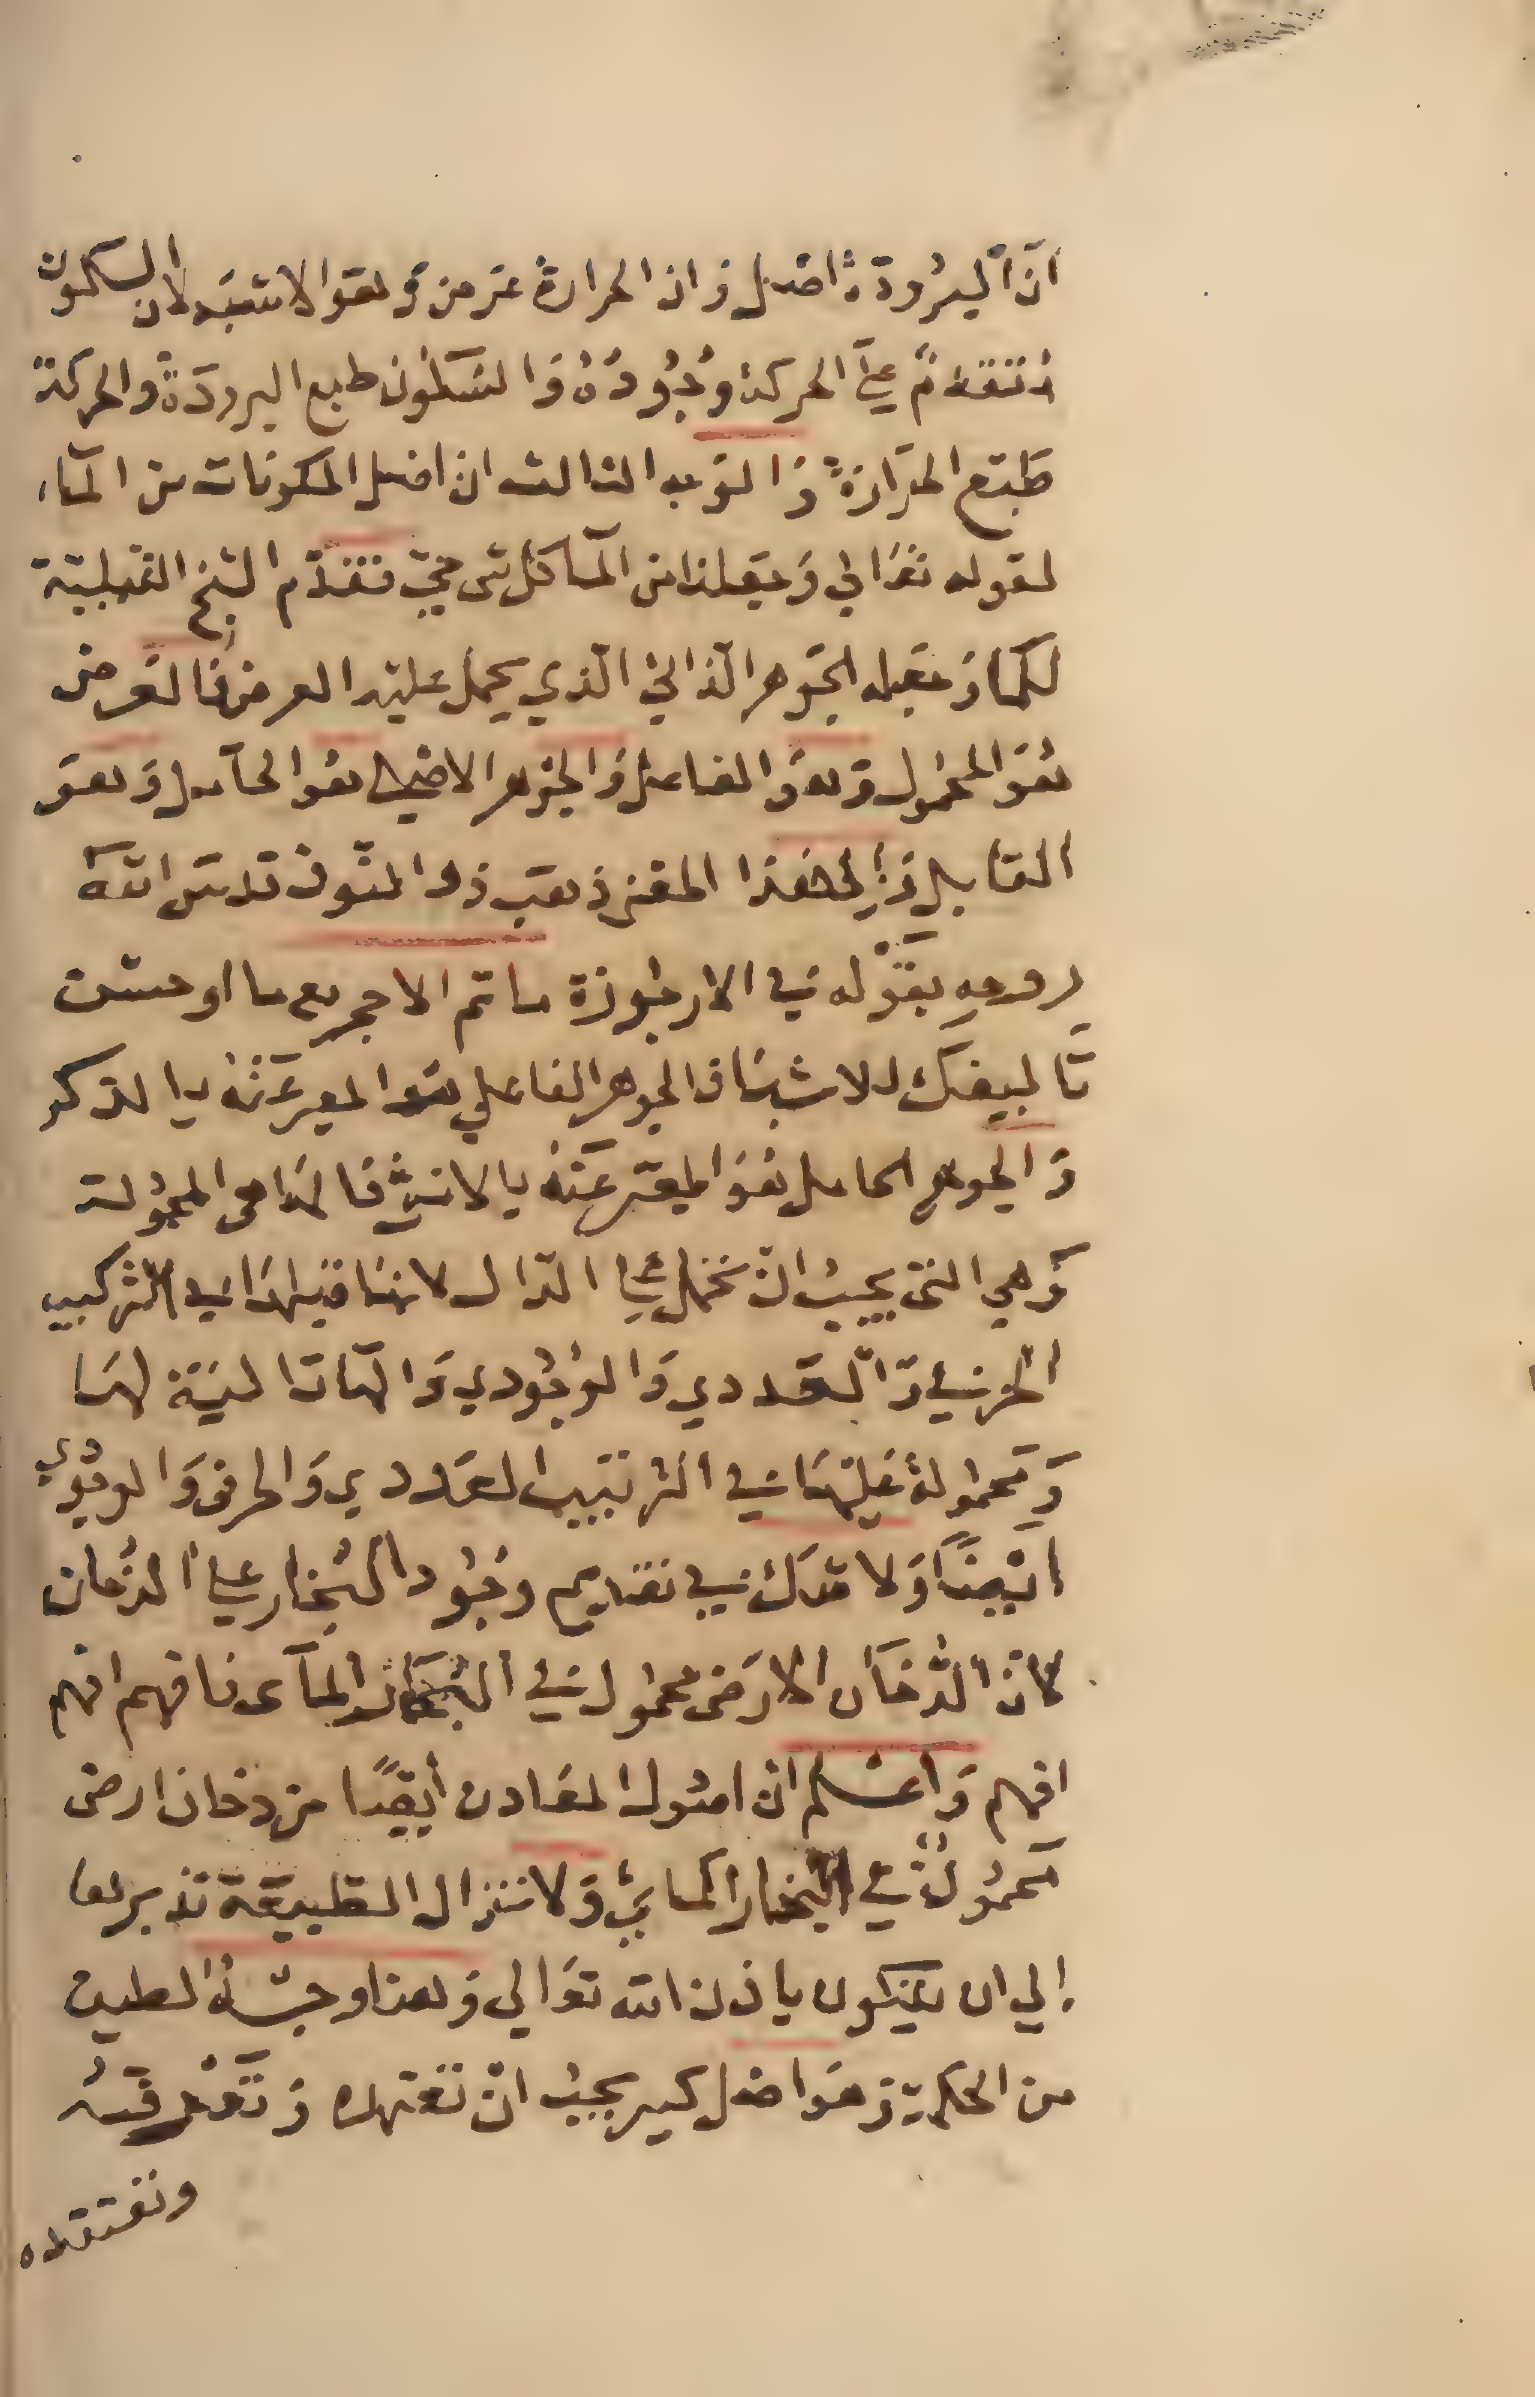 ان البرودة اصل وان الحرارة عرض وهو الاشبه لان السكون
متقدم على الحركة وجوده والسكون طبع البرودة والحركة
طبع الحرارة والوجه الثالث ان اصل المكونات من الماء
لقوله تعالى وجعلنا من الماء كل شى حي فتقدم الشيخ القبلية
لكماز جعله الجوهر الذاتي الذي يحمل عليه العرض فالعرض
هو المحمول وهو الفاعل والجوهر الاصلي هو الحامل وهو
القابل والى هذا المعنى ذهب ذو النون قدس الله
روحه بقوله في الارجوزة ما تم الا حجر مع ما اوحشت
تاليفك للاشيا فالجوهر الفاعلي هو المعبر عنه بالذكر
والجوهر الحامل هو المعبر عنه بالانثى فالها هى المحمولة
وهي التى يجب ان تحمل على الدال لانها قبلها في التركيب
الحرفي والعددي والوجودي والها تالية لها
ومحمولة عليها في الترتيب العددي والحرفي والوجودي
ايضا ولا شك في تقديم وجود البخار على الدخان
لان الدخان الارضى محمول في البخار المآى فافهم افهم
افهم واعلم ان اصول المعادن ايضًا من دخان ارضى
محمول في البخار المائي ولا تزال الطبيعة تدبرها
الي ان يتكون باذن الله تعالي وهذا وجه لطيف
من الحكمة وهو اصل كبير يجب ان تفهمه وتعرفه
وتعتقده